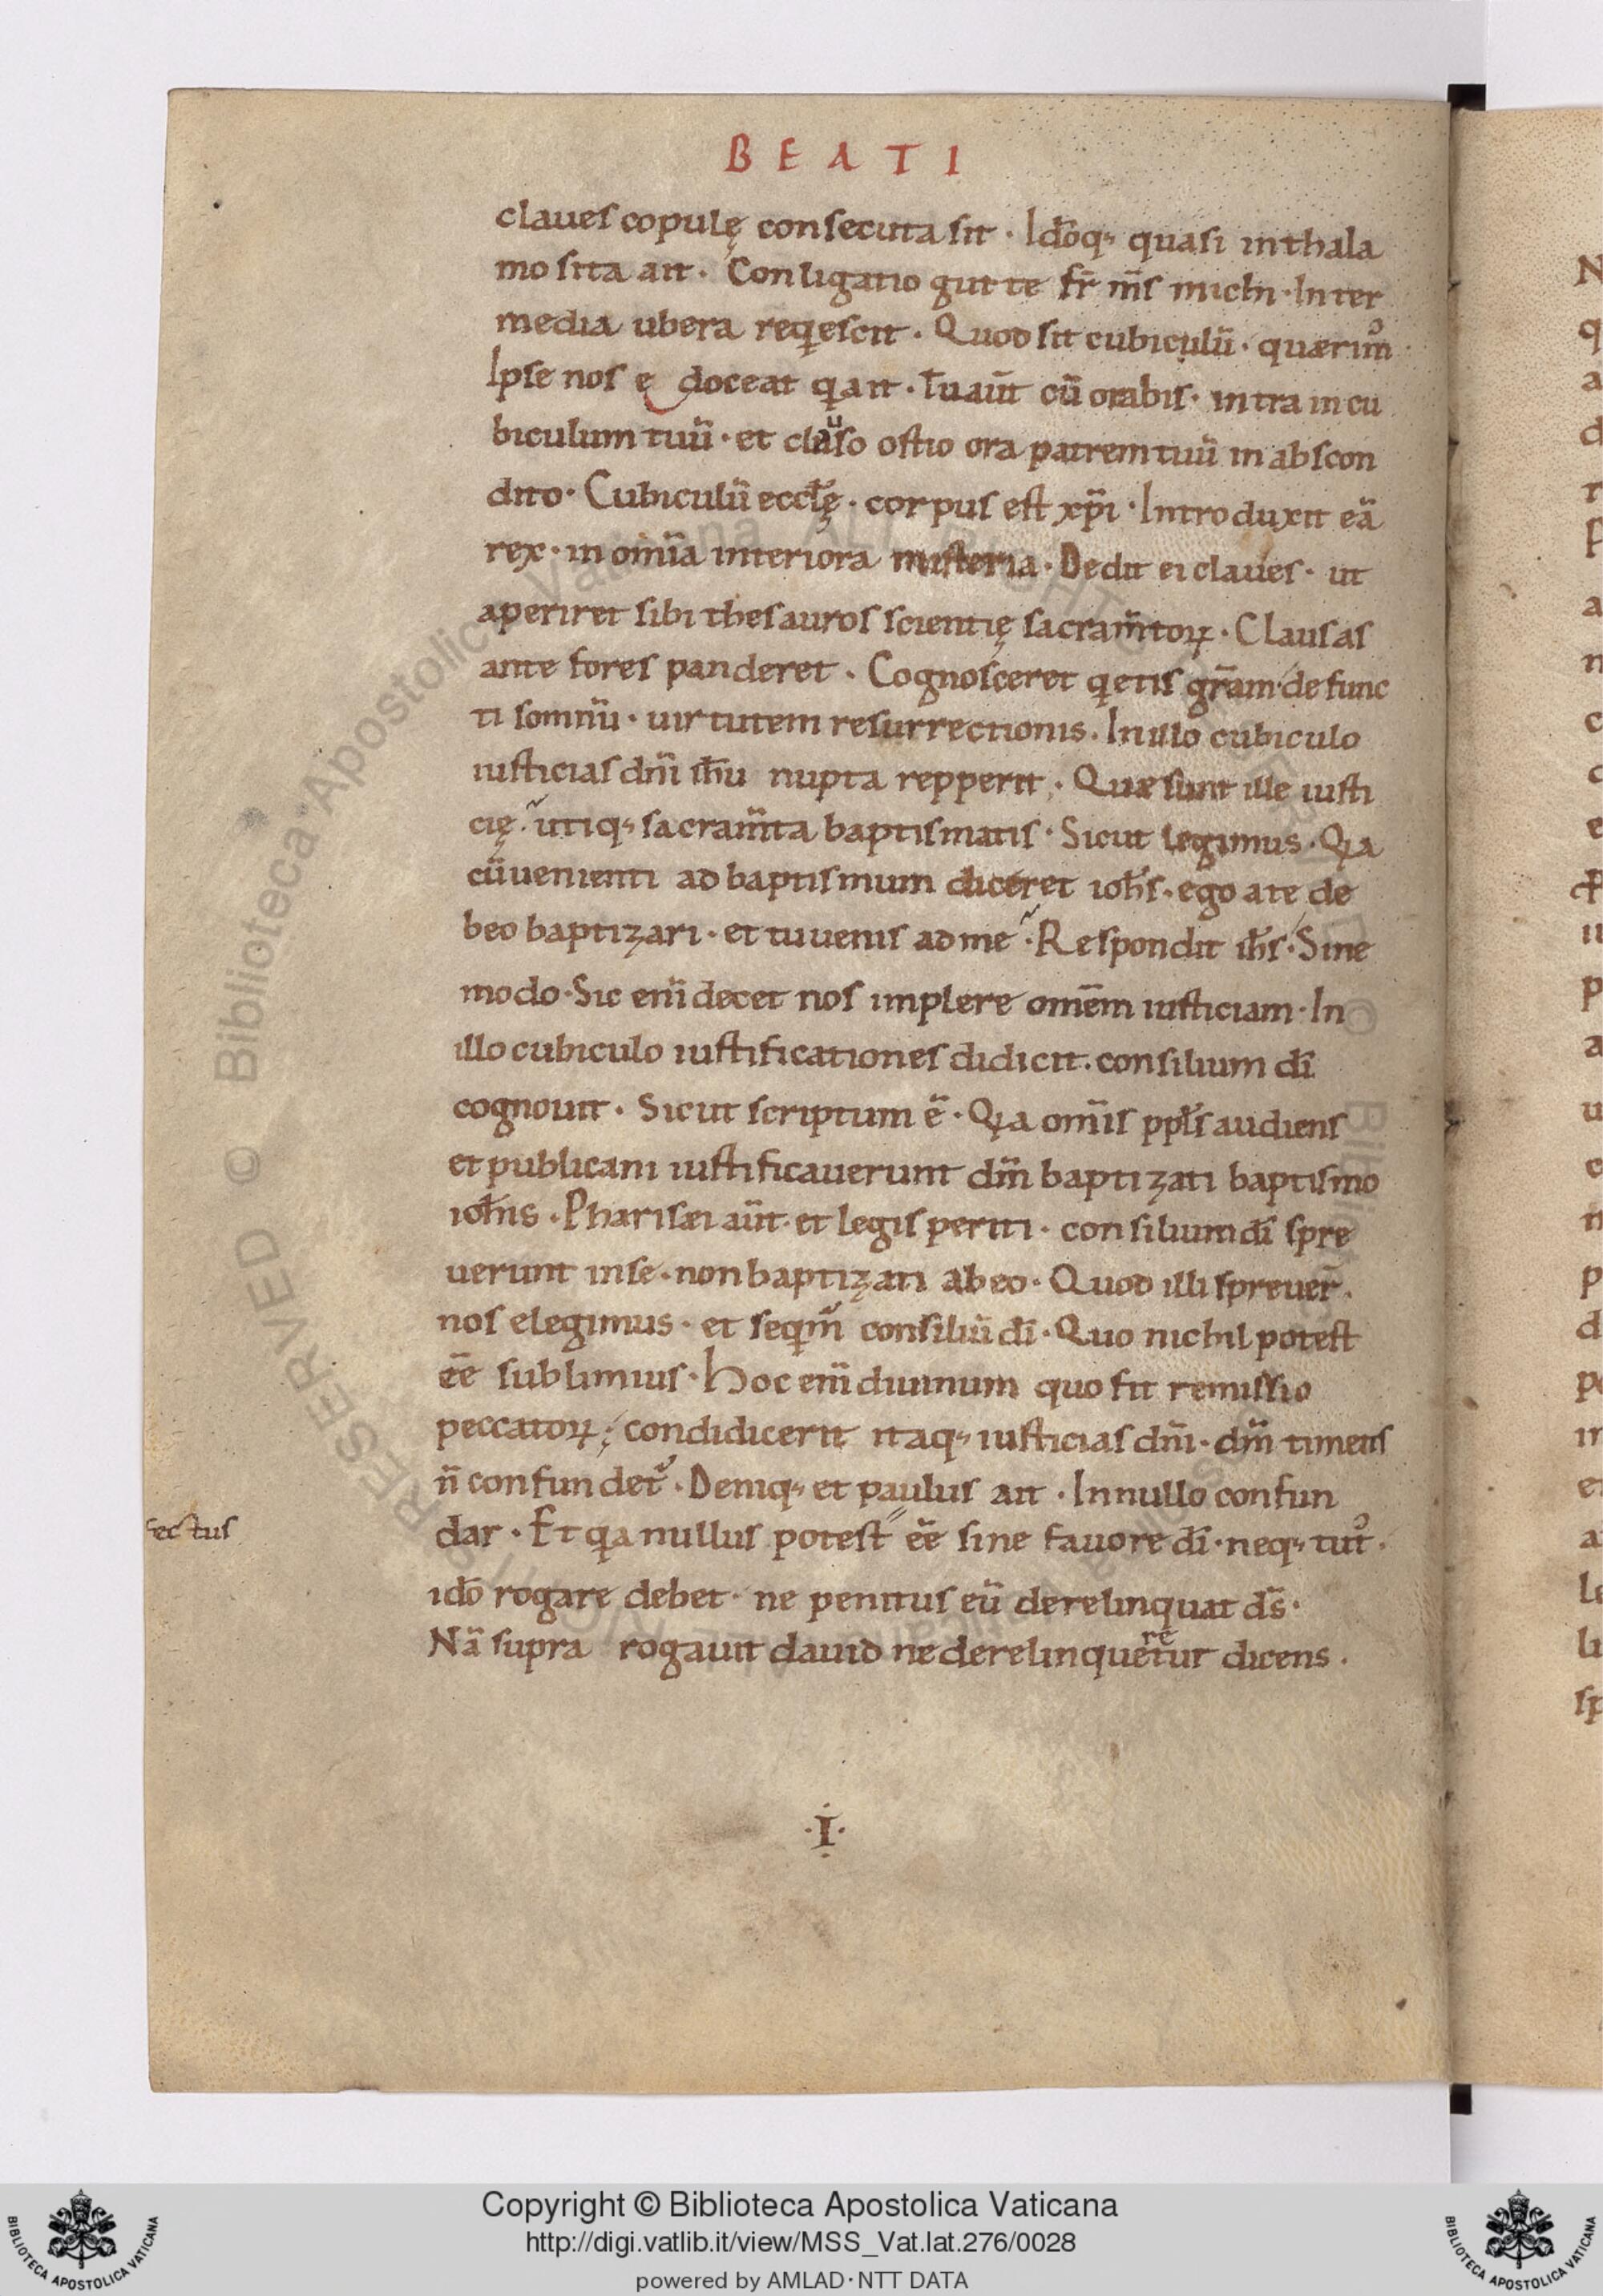 BEATI
claues copulę consecuta sit · Id̅oq; quasi inthala
mo sita ait · Conligatio gutte fr̅ m̅s michi · Inter
media ubera reqescit · Quod sit cubiculū · quærim᾽
Ipse nos e doceat q ait · Tu aūt cū orabis · intra in cu
biculum tuū · et clauso ostio ora patrem tuū in abscon
dito · Cubiculū eccl̅ę · corpus est xp̅i · Introduxit eā
rex · in om̅ia interiora misteria · Dedit ei claues · ut
aperiret sibi thesauros scientię sacram̅toꝝ · Clausas
ante fores panderet · Cognosceret qetis gr̅am · defunc
ti somnū · uirtutem resurrectionis. In illo cubiculo
iusticias dn̅i ih̅u nupta repperit · Quæ sunt ille iusti
cię · utiq; sacram̅ta baptismatis · Sicut legimus · Qa
cū uenienti ad baptismum diceret ioh̅s · ego a te de
beo baptizari · et tu uenis ad me · Respondit ih̅s · Sine
modo · Sic eni̅ decet nos implere om̅em iusticiam · In
illo cubiculo iustificationes didicit · consilium dī
cognouit · Sicut scriptum ē · Qa om̅is ppl̅s audiens
et publicani iustificauerunt dm̅ baptizati baptismo
ioh̅nis · Pharisæi aūt et legis periti · consilium dī spre
uerunt in se · non baptizati ab eo · Quod illi spreuer̅ ·
nos elegimus · et seqm̅ consiliū dī · Quo nichil potest
ēē sublimius · Hoc eni̅ diuinum quo fit remissio
peccatoꝝ; condidicerit itaq; iusticias dn̅i · dm̅ timens
n̅ confundet᷑ · Deniq; et paulus ait · In nullo confun
dar · Et qa nullus potest ēē sine fauore dī · neq; tut᾽ ·
fectus
id̅o rogare debet · ne penitus eū derelinquat ds̅ ·
Nā supra rogauit dauid ne derelinqueretur dicens ·
· I ·
Copyright © Biblioteca Apostolica Vaticana
http://digi.vatlib.it/view/MSS_Vat.lat.276/0028
powered by AMLAD·NTT DATA
BIBLIOTECA APOSTOLICA VATICANA
BIBLIOTECA APOSTOLICA VATICANA